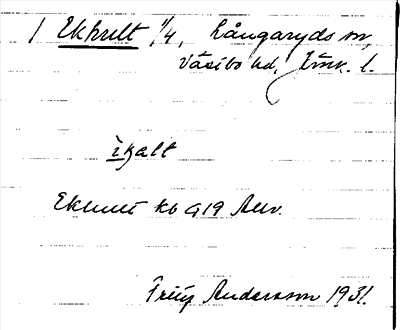 1 Ekhult 1/4, Långaryds sn,
Västbo hd, Jönk. l.
Ekhult kb G19 Allv.
Fritz Andersson 1931.